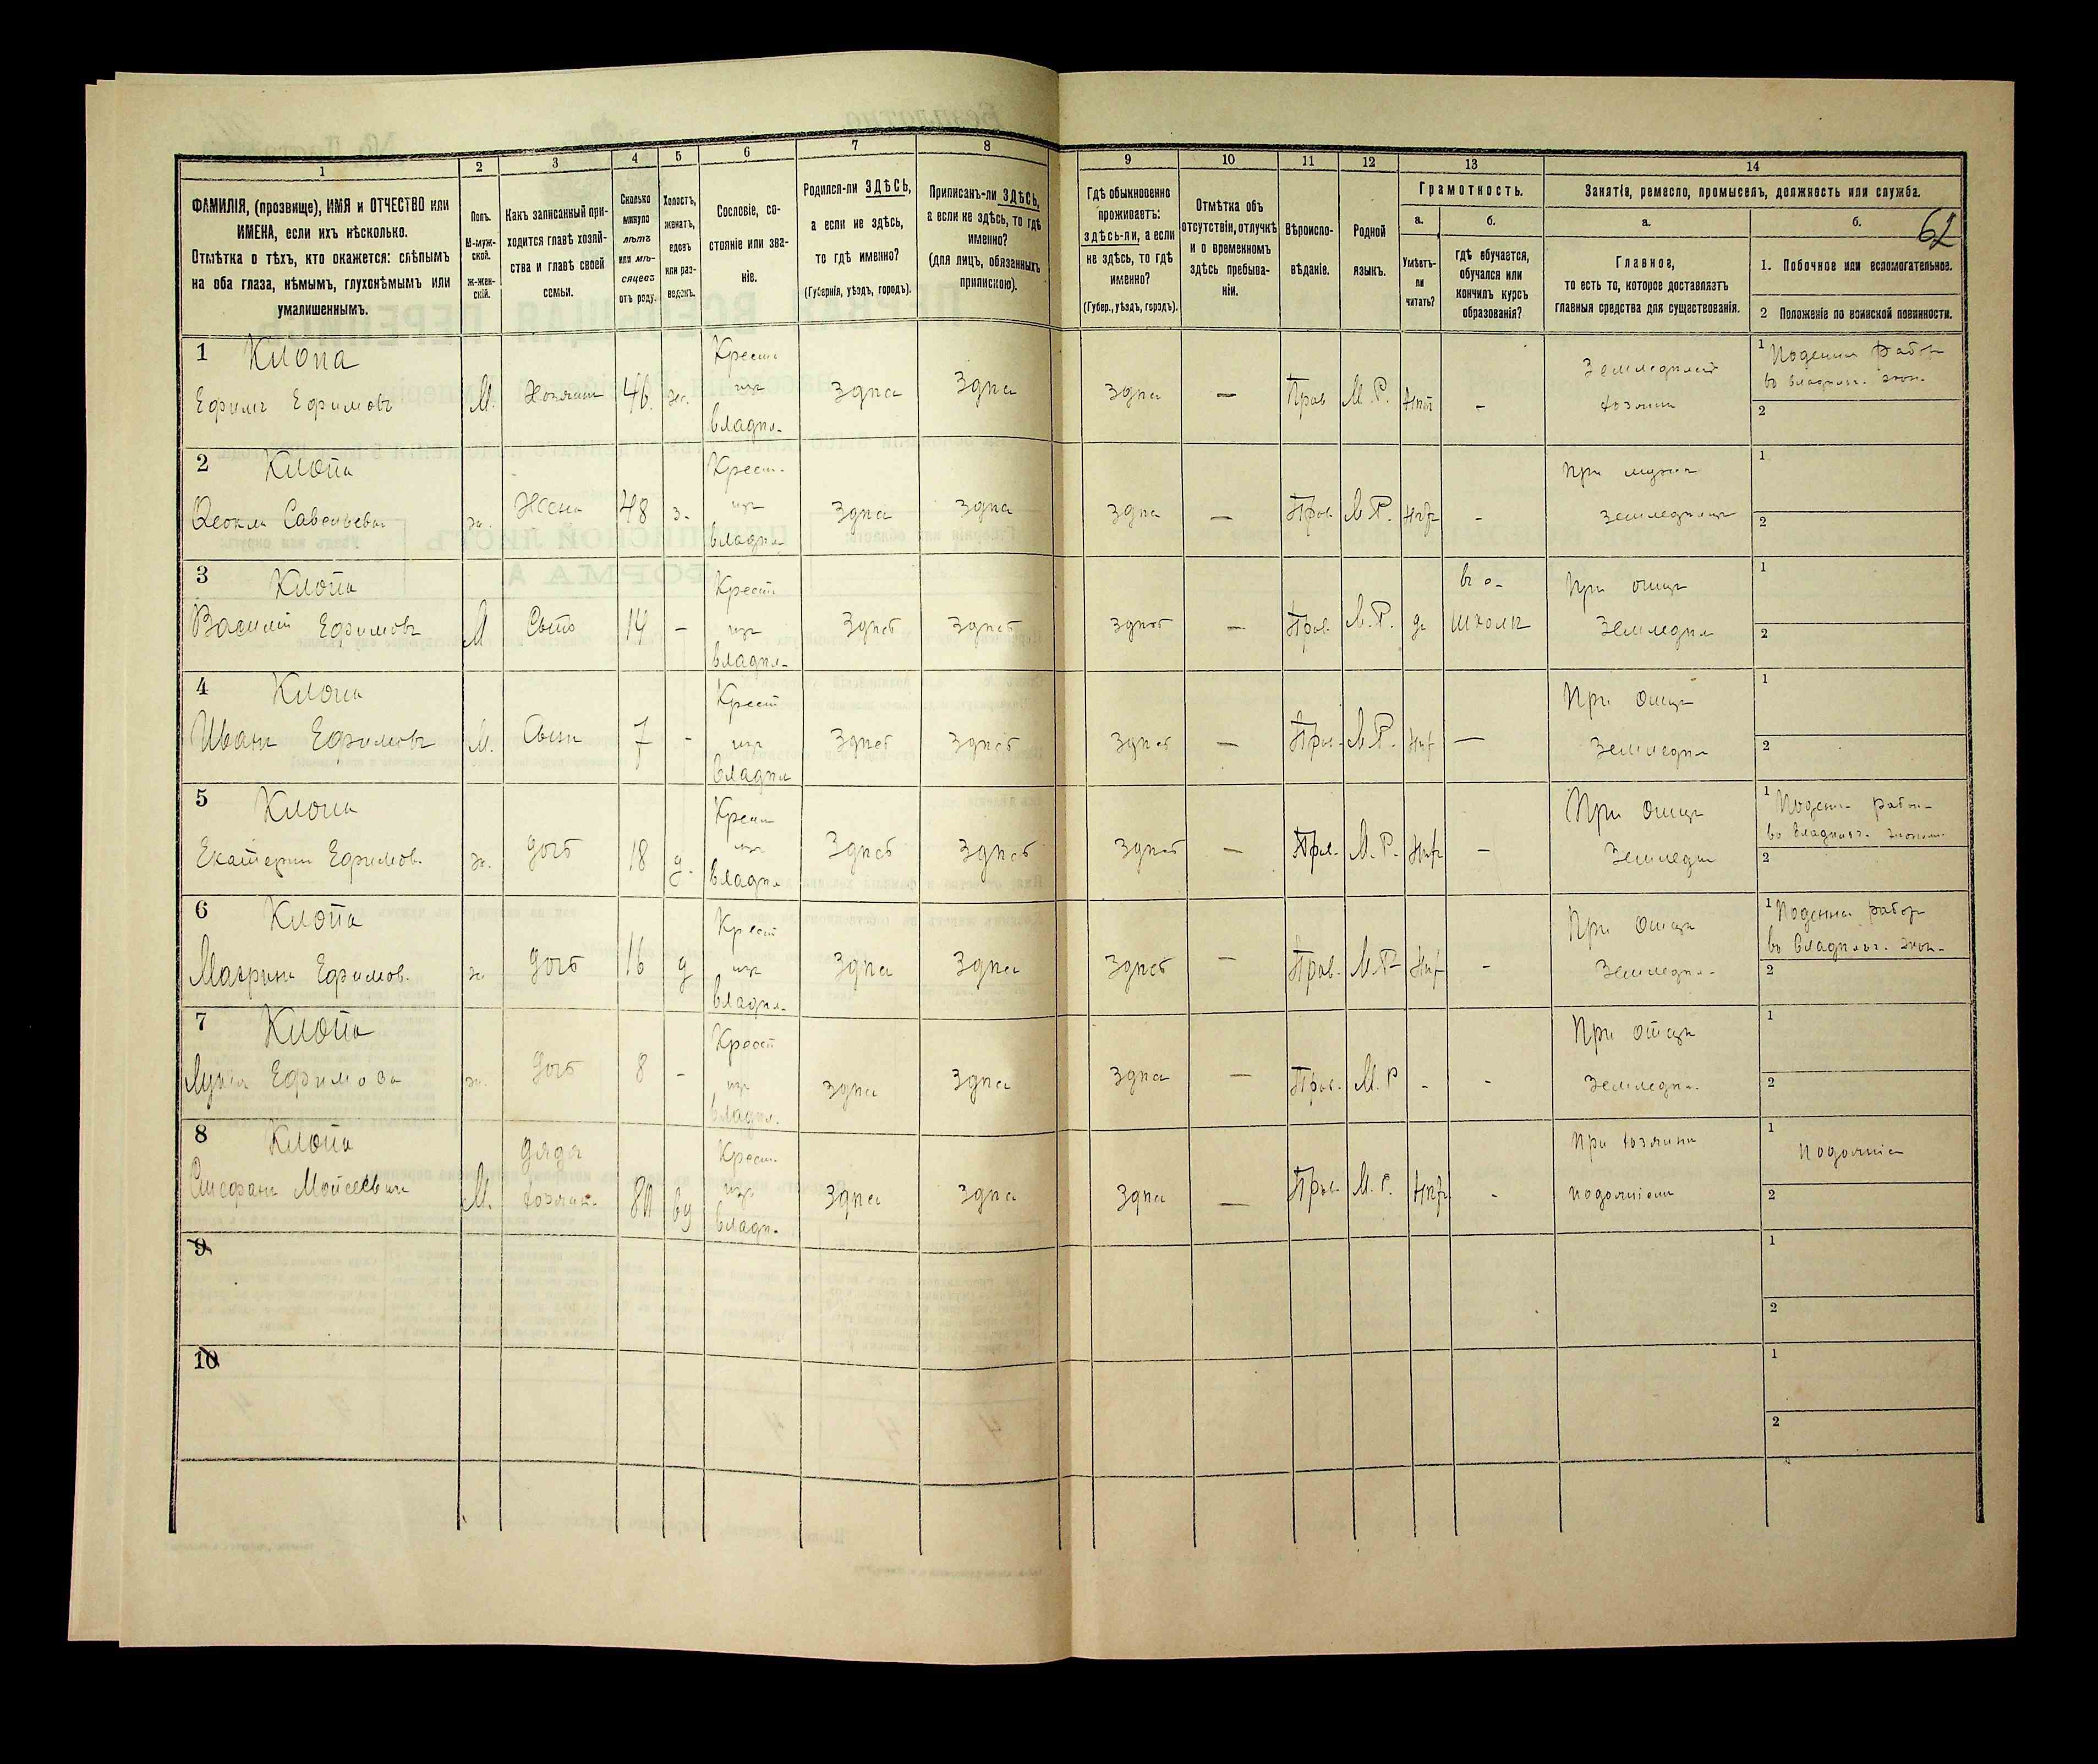 1 2 3 4 5 6 7 8 9 10 11 12 13 14
ФАМИЛІЯ, (прозвище), ИМЯ и ОТЧЕСТВО или
ИМЕНА, если ихъ нѣсколько.
Отмѣтка о тѣхъ, кто окажется: слѣпымъ
на оба глаза, нѣмымъ, глухонѣмымъ или
умалишеннымъ.
Полъ.
М-муж-
ской.
ж-жен-
скій.
Какъ записанный при-
ходится главѣ хозяй-
ства и главѣ своей
семьи.
Сколько
минуло
лѣтъ
или мѣ-
сяцевъ
отъ роду.
Холостъ,
женатъ,
вдовъ
или раз-
веденъ.
Сословіе, со-
стояніе или зва-
ніе.
Родился-ли ЗДѢСЬ,
а если не здѣсь,
то гдѣ именно?
(Губернія, уѣздъ, городъ).
Приписанъ-ли ЗДѢСЬ,
а если не здѣсь, то гдѣ
именно?
(для лицъ, обязанныхъ
припискою).
Гдѣ обыкновенно
проживаетъ:
здѣсь-ли, а если
не здѣсь, то гдѣ
именно?
(Губер., уѣздъ, городъ).
Отмѣтка объ
отсутствіи, отлучкѣ
и о временномъ
здѣсь пребыва-
ніи.
Вѣроиспо-
вѣданіе.
Родной
языкъ.
Грамотность.
а.
Умѣетъ-
ли
читать?
б.
гдѣ обучается,
обучался или
кончилъ курсъ
образованія?
Занятіе, ремесло, промыселъ, должность или служба.
а.
Главное,
то есть то, которое доставляетъ
главныя средства для существованія.
б.
62
1. Побочное или вспомогательное.
2 Положеніе по воинской повинности.
1 Клопа
Ефимъ Ефимовъ
М. Хозяинъ 46. ж.
Крест
изъ
владѣл.
здѣсь здѣсь здѣсь — Прав М.Р. нѣт -
Земледѣлец
хозяин
1 Поденн работ
во владѣльч. экон.
2
2 Клопа
Феокла Савельева
ж. Жена 48 з.
Крест.
изъ
владѣл
здѣсь здѣсь здѣсь — Прав М.Р. нѣт -
При мужѣ
земледѣльцѣ
1
2
3 Клопа
Василій Ефимовъ
М Сынъ 14 -
Крест
изъ
владѣл.
здѣсь здѣсь здѣсь — Прав. М.Р. да
школѣ
При отцѣ
земледѣл
1
2
4 Клопа
Иванъ Ефимовъ
М. Сынъ 7 -
Крест
изъ
владѣл
здѣсь здѣсь здѣсь — Прав. М.Р. нѣт —
При отцѣ
земледѣл
1
2
5 Клопа
Екатерин Ефимов.
ж. дочь 18 д.
Крест
изъ
владѣл
здѣсь здѣсь здѣсь — Прав. М.Р. нѣт -
При отцѣ
земледѣл
1 Поденн работ
во владѣльч. эконом.
2
6 Клопа
Маврина Ефимов.
ж. дочь 16 д
Крест
изъ
владѣл.
здѣсь здѣсь здѣсь — Прав. М.Р. нѣт -
При отцѣ
земледѣл.
1 Поденна работ
во владѣльч. экон.
2
7 Клопа
Ефимова
ж. дочь 8 -
Крест
изъ
владѣл.
здѣсь здѣсь здѣсь — Прав. М.Р - -
При отцѣ
земледѣл.
1
2
8 Клопа
Моисеевичъ
М.
дядя
хозяин. 80 вд
Крест.
изъ
владѣл.
здѣсь здѣсь здѣсь — Прав. М.Р. нѣт -
При хозяинѣ
1
2
9
1
2
10
1
2